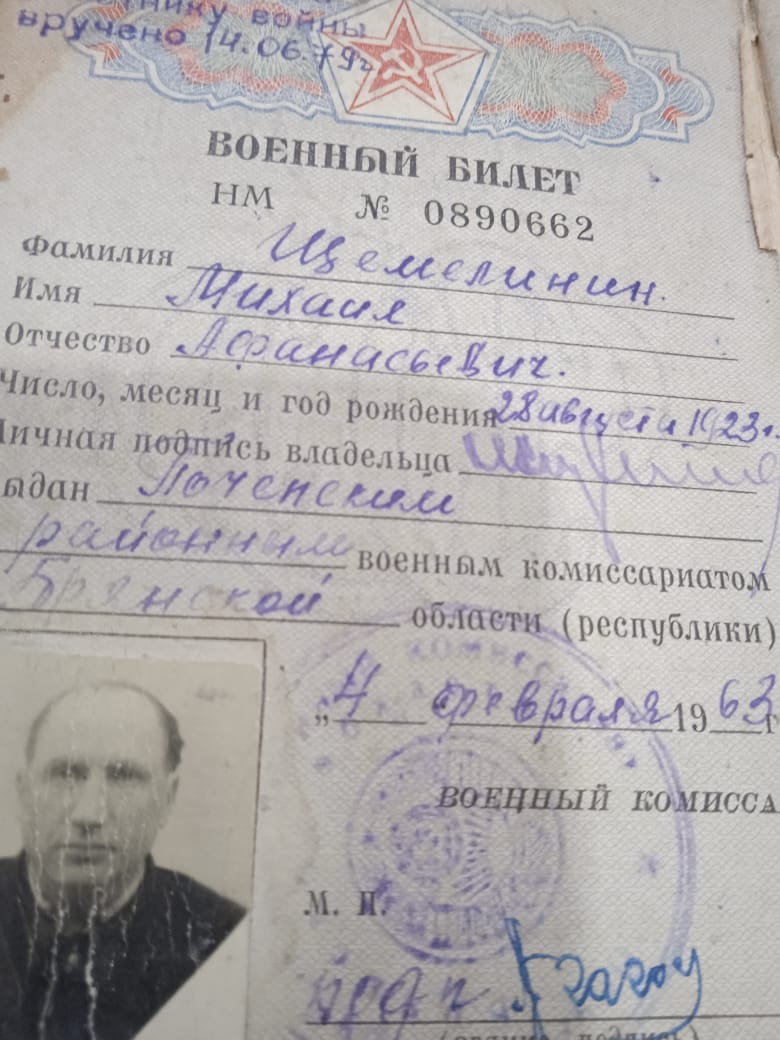 нику войны
вручено 14.06.79г
ВОЕННЫЙ БИЛЕТ
НМ № 0890662
Фамилия Щемелинин.
Имя Михаил
Отчество Афанасьевич.
Число, месяц и год рождения 28 августа 1923г.
Личная подпись владельца
ыдан Почепским
районным военным комиссариатом
Брянской области (республики)
„4 февраля 1963 г
ВОЕННЫЙ КОМИССА
М. П.